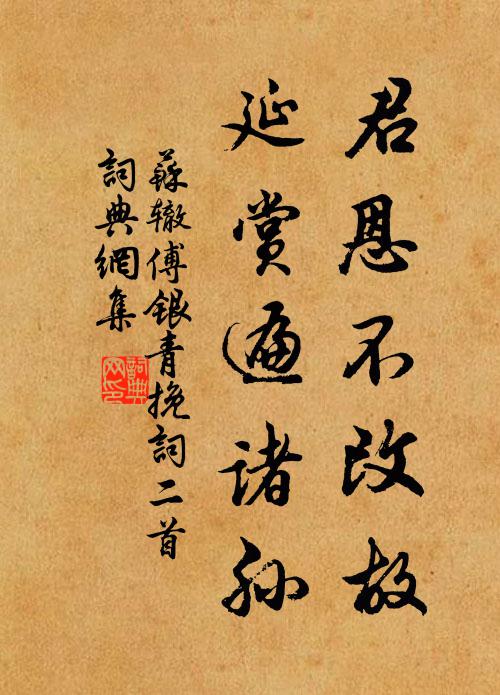 君恩不改故
延賞遍諸孙
蘇辙傅银青挽詞二首
詞典網集
詞典
网印